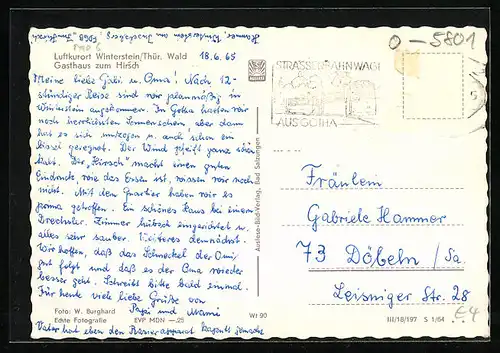 Hammer, Winterstein am Inselsberg, 5908 „
O-5801
Luftkurort Winterstein/Thür. Wald
Gasthaus zum Hirsch
18.6.65
STRASSENBAHNWAGEN
AUS GOTHA
Meine liebe Gabi u. Oma! Nach 12-
stündiger Reise sind wir planmäßig in
Winterstein angekommen. In Gotha hatten wir
noch herrlichsten Sonnenschein, aber dann
hat es sich umzogen u. auch schon ein
bissel geregnet. Der Wind pfeift ganz schön
kalt. Der „Hirsch" macht einen guten
Eindruck, wie das Essen ist, wissen wir noch
nicht. Mit dem Quartier haben wir es
prima getroffen. Ein schönes Haus bei einem
Drechsler. Zimmer hübsch eingerichtet u.
alles sehr sauber. Weiteres demnächst.
Wir hoffen, daß das Schnackel der Omi
gut folgt und daß es der Oma wieder
besser geht. Schreibt bitte bald einmal.
Für heute viele liebe Grüße von
Papi und Mami
Vater hat eben den Rasierapparat kaputt gemacht
Auslese-Bild-Verlag, Bad Salzungen
Fräulein
Gabriele Hammer
73 Döbeln/Sa.
Leisniger Str. 28
Foto: W. Burghard
Echte Fotografie
EVP MDN —.25
Wt 90
III/18/197 S 1/64
€4